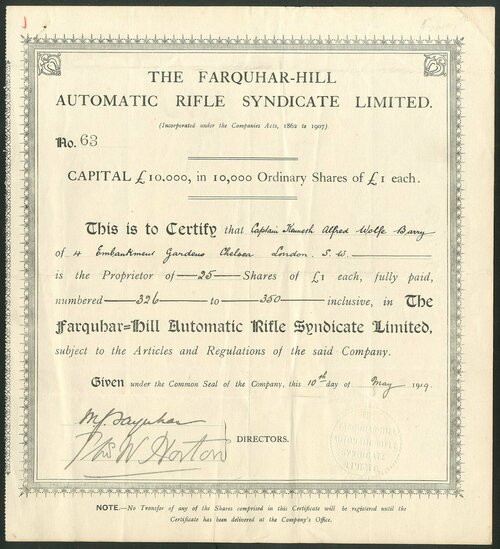 THE FARQUHAR-HILL
AUTOMATIC RIFLE SYNDICATE LIMITED.
(Incorporated under the Companies Acts, 1862 to 1907).
No. 63
CAPITAL £10,000, in 10,000 Ordinary Shares of £1 each.
This is to Certify that Captain Kenneth Alfred Wolfe Barry
of 4 Embankment Gardens Chelsea London. S.W.
is the Proprietor of 25 Shares of £1 each, fully paid,
numbered 326 to 350 inclusive, in The
Farquhar-Hill Automatic Rifle Syndicate Limited,
subject to the Articles and Regulations of the said Company.
Given under the Common Seal of the Company, this 10th day of May 1919.
M. G. Farquhar
Thos W Horton
DIRECTORS.
FARQUHAR-HILL
AUTOMATIC RIFLE
SYNDICATE
LIMITED
NOTE.—No Transfer of any of the Shares comprised in this Certificate will be registered until the
Certificate has been delivered at the Company's Office.